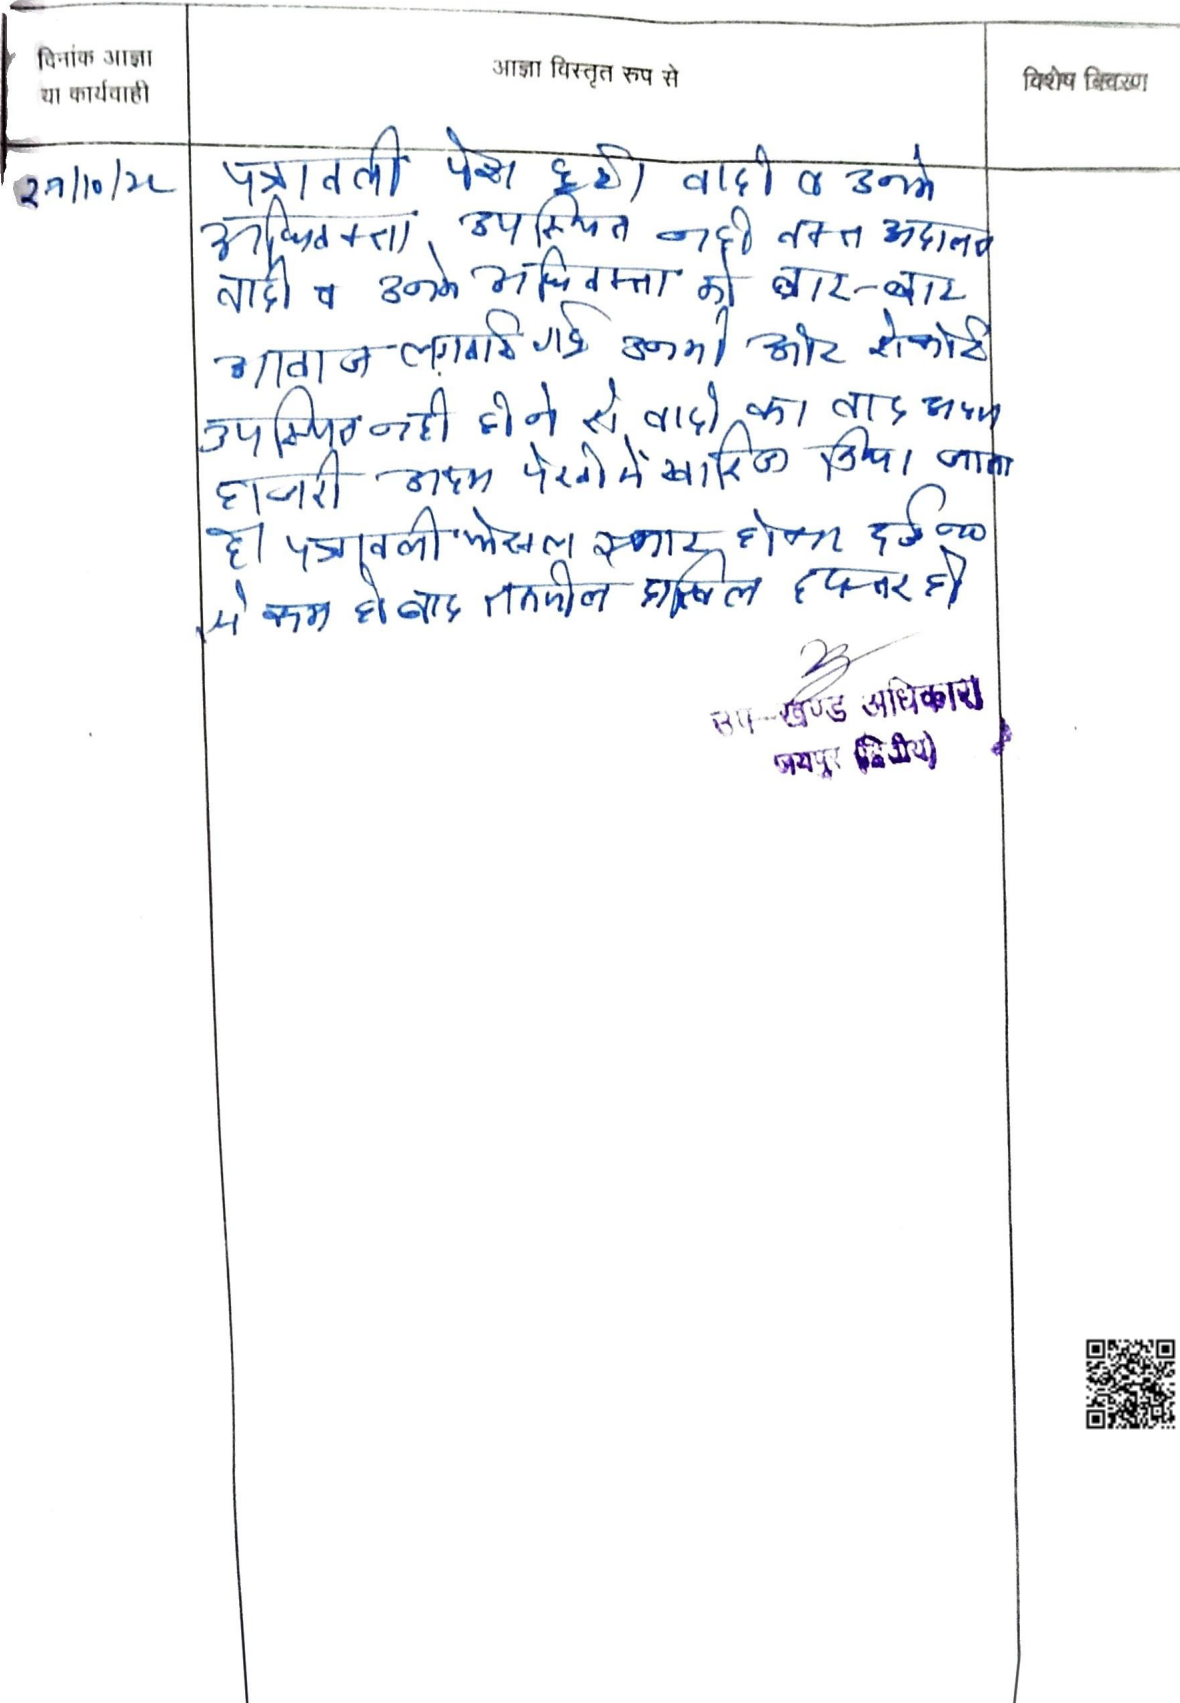 दिनांक आज्ञा
या कार्यवाही
आज्ञा विस्तृत रूप से
विशेष विवरण
पत्रावली पेश हुई। वादी व उनके
अधिवक्ता उपस्थित नही वक्त अदालत
वादी व उनके अधिवक्ता को बार-बार
आवाज लगवाई गई उनकी ओर से कोई
उपस्थित नही होने से वादी का वाद अदम
हाजरी अदम पैरवी में खारिज किया जाता
है। पत्रावली फैसल शुमार होकर दर्ज
से कम हो बाद तकमील दाखिल दफ्तर हो
उप-खण्ड अधिकारी
जयपुर (द्वितीय)